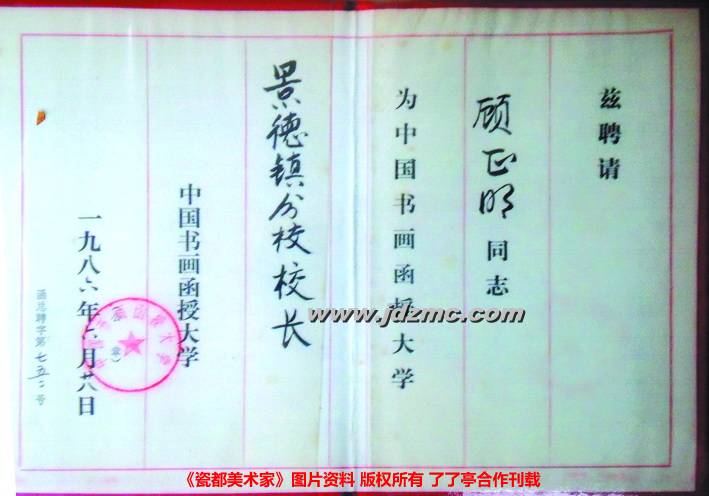 兹聘请
顾正明同志
为中国书画函授大学
景德镇分校校长
中国书画函授大学
一九八六年六月廿八日
函总聘字第七五二号
www.jdzmc.com
《瓷都美术家》图片资料 版权所有 了了亭合作刊载